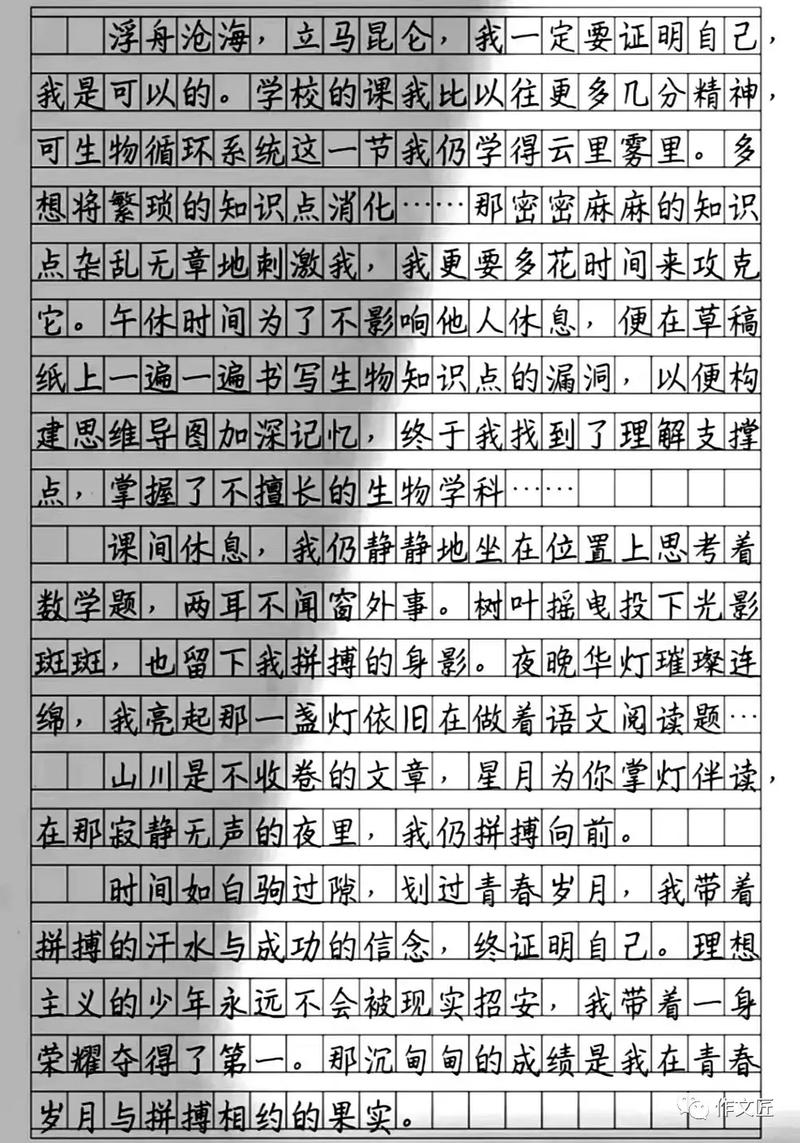 浮舟沧海，立马昆仑，我一定要证明自己，
我是可以的。学校的课我比以往更多几分精神，
可生物循环系统这一节我仍学得云里雾里。多
想将繁琐的知识点消化……那密密麻麻的知识
点杂乱无章地刺激我，我更要多花时间来攻克
它。午休时间为了不影响他人休息，便在草稿
纸上一遍一遍书写生物知识点的漏洞，以便构
建思维导图加深记忆，终于我找到了理解支撑
点，掌握了不擅长的生物学科……
课间休息，我仍静静地坐在位置上思考着
数学题，两耳不闻窗外事。树叶摇电投下光影
斑斑，也留下我拼搏的身影。夜晚华灯璀璨连
绵，我亮起那一盏灯依旧在做着语文阅读题…
山川是不收卷的文章，星月为你掌灯伴读，
在那寂静无声的夜里，我仍拼搏向前。
时间如白驹过隙，划过青春岁月，我带着
拼搏的汗水与成功的信念，终证明自己。理想
主义的少年永远不会被现实招安，我带着一身
荣耀夺得了第一。那沉甸甸的成绩是我在青春
岁月与拼搏相约的果实。
作文匠